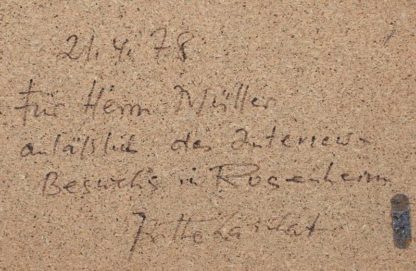 21. 4. 78
Für Herrn Müller
anläßlich des Interview-
Besuchs in Rosenheim